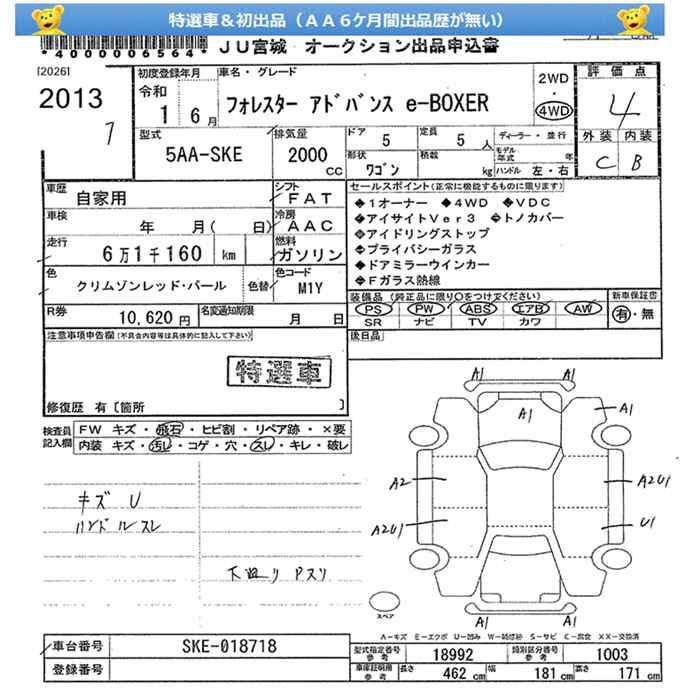 特選車＆初出品（ＡＡ６ケ月間出品歴が無い）
*4000006564*
ＪＵ宮城 オークション出品申込書
[2026]
2013
7
初度登録年月
令和
1 6月
車名・グレード
フォレスター アドバンス e-BOXER
2WD
・
4WD
評価点
4
外装 内装
C B
型式
5AA-SKE
排気量
2000
CC
ドア
5
定員
5 人
形状
ワゴン
積載
kg
ディーラー・並行
モデル年式 年
ハンドル 左・右
車歴
自家用
シフト
ＦＡＴ
車検
年 月( 日)
冷房
ＡＡＣ
走行
6万1千160 km
燃料
ガソリン
色
クリムゾンレッド・パール
色替
色コード
M1Y
R券
10,620 円
名変通知期限
月 日
セールスポイント(正常に機能するものに限ります)
◆１オーナー ◆４ＷＤ ◆ＶＤＣ
◆アイサイトＶｅｒ３ ◆トノカバー
◆アイドリングストップ
◆プライバシーガラス
◆ドアミラーウインカー
◆Ｆガラス熱線
装備品（純正品に限り○をつけてください）
PS PW ABS エアB AW
SR ナビ TV カワ
新車保証書
有・無
後日品
注意事項申告欄(不具合内容等は具体的に記入して下さい)
特選車
修復歴 有〔箇所 〕
検査員記入欄
ＦＷ キズ・飛石・ヒビ割・リペア跡・×要
内装 キズ・汚し・コゲ・穴・スレ・キレ・破レ
キズ U
ハンドルスレ
下廻り Pスリ
A1 A1
A1
A1
A2
A2U1
A2U1
U1
A1 A1
スペア
A－キズ E－エクボ U－凹み W－補修跡 S－サビ C－腐食 XX－交換済
車台番号
SKE-018718
登録番号
型式指定番号
参考
18992
類別区分番号
参考
1003
車庫証明用
参考
長さ 462 cm
幅 181 cm
高さ 171 cm